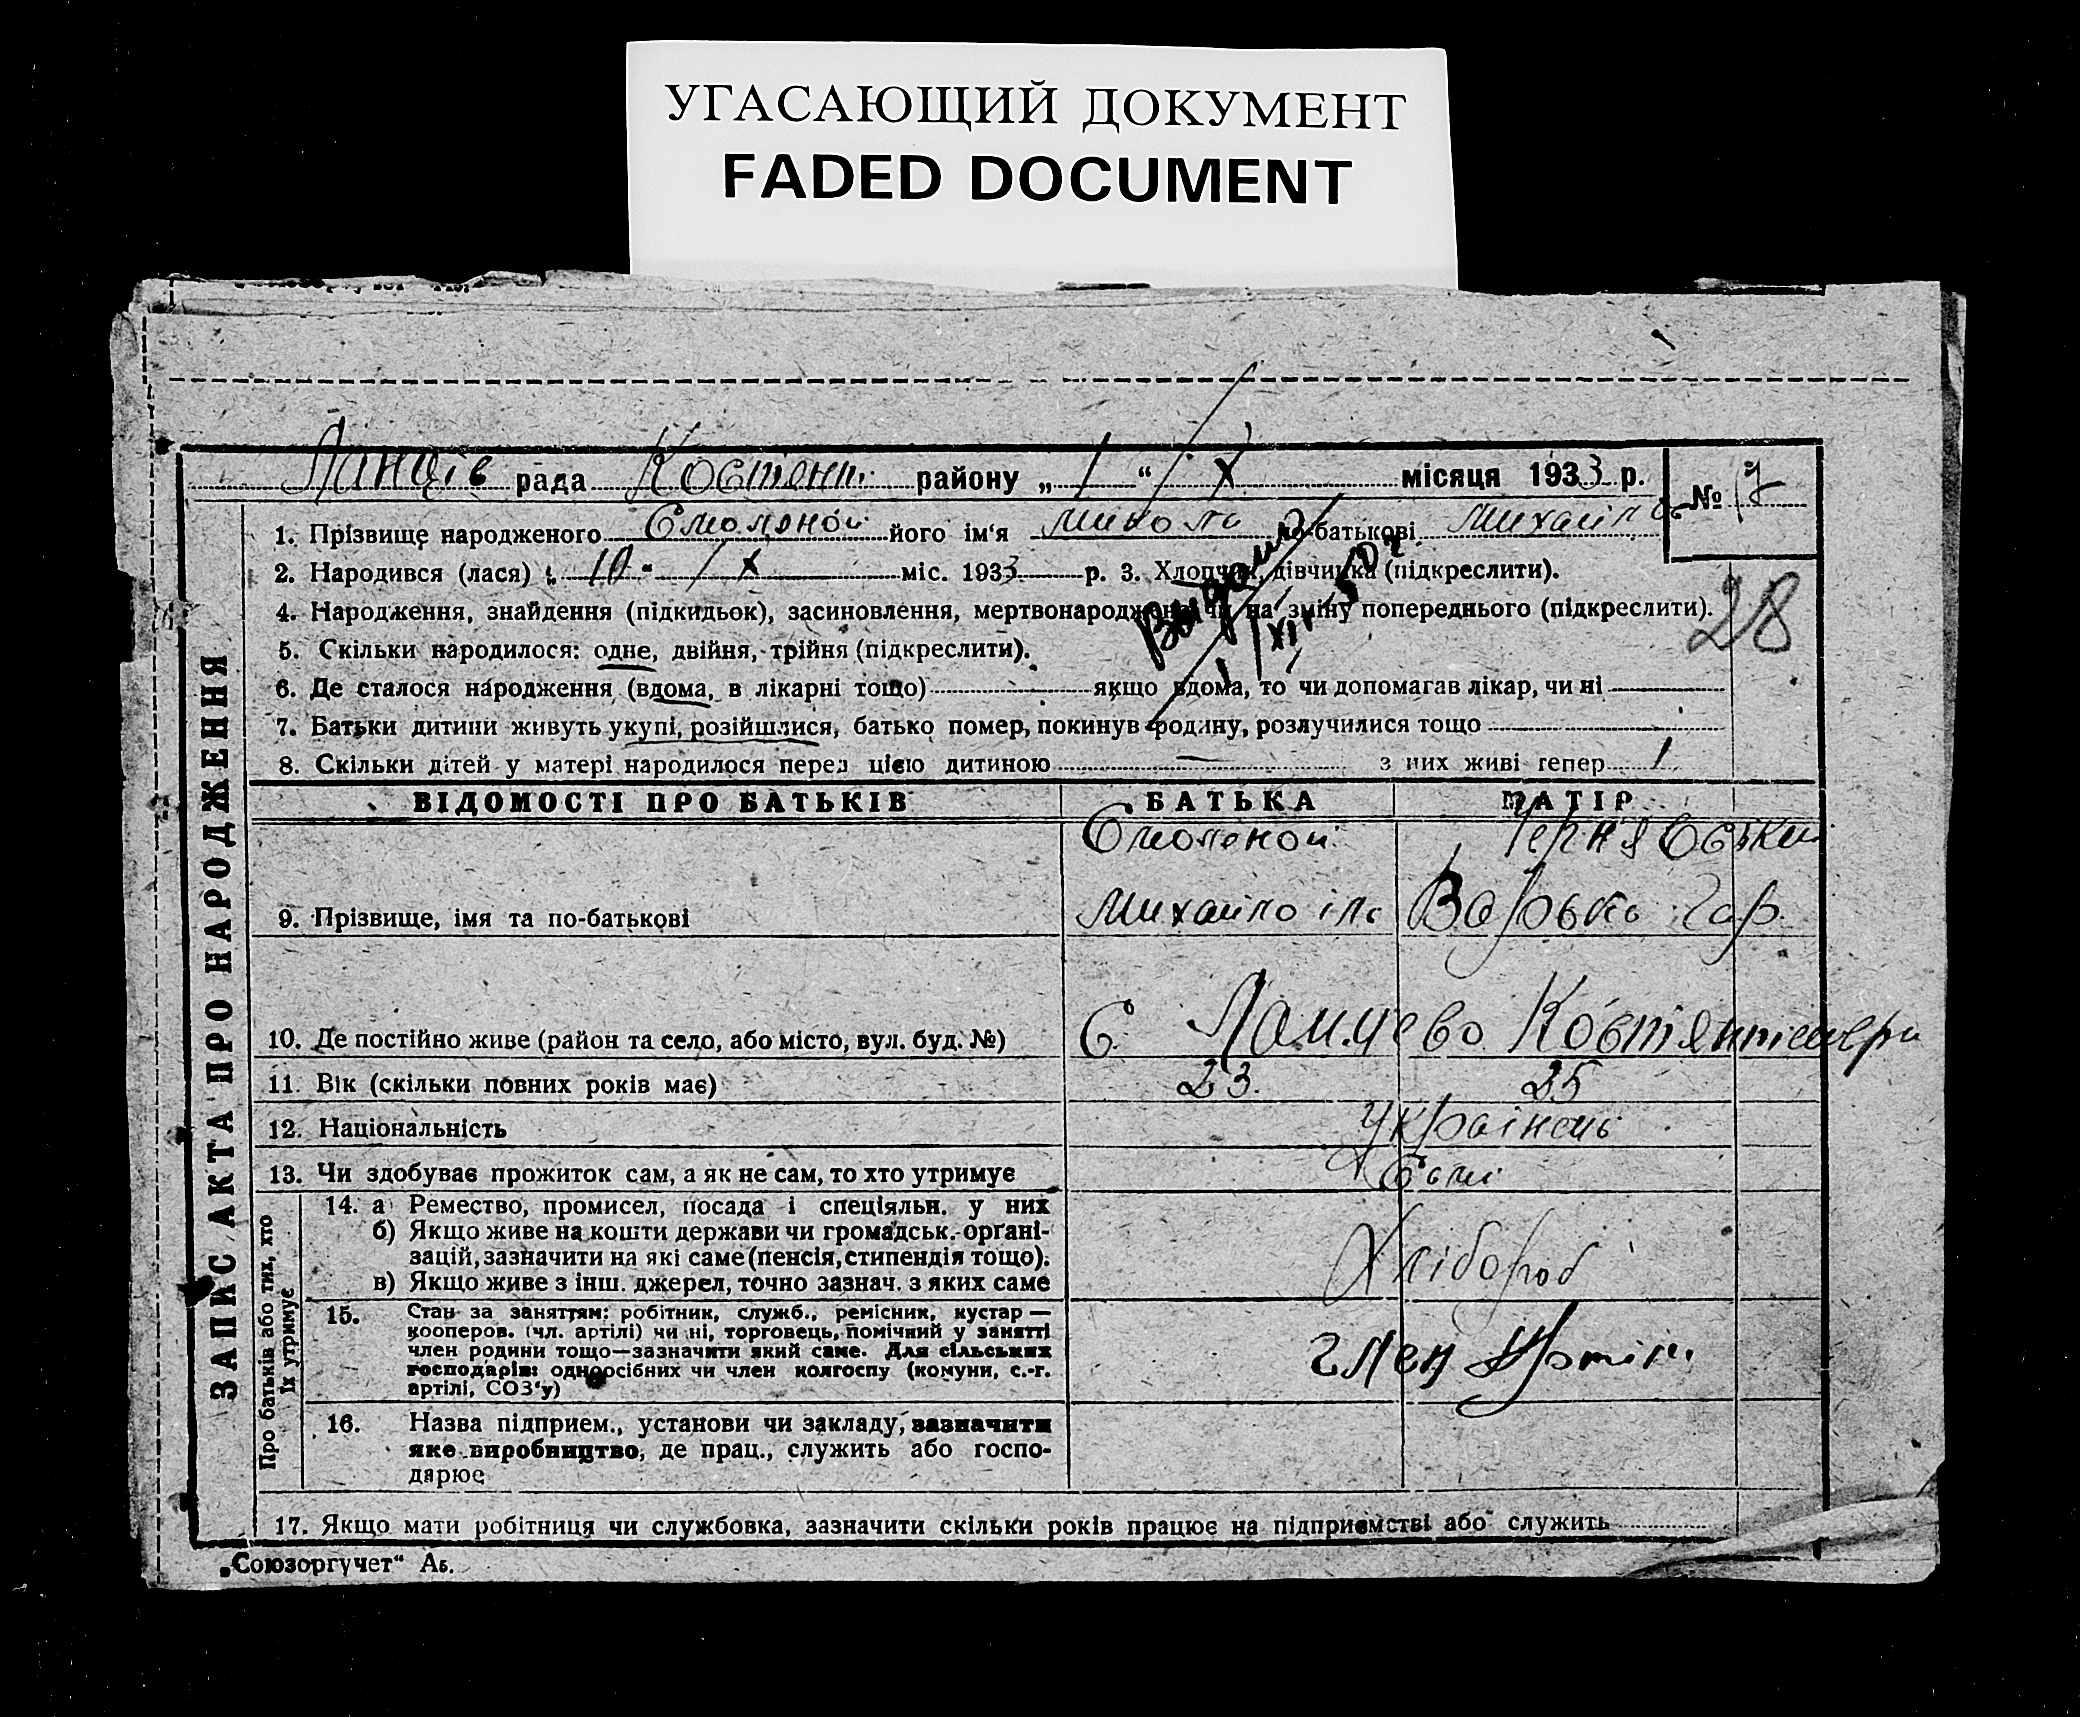 УГАСАЮЩИЙ ДОКУМЕНТ
FADED DOCUMENT
рада Костянт. району „ 1 “ X місяця 1933 р.
№ 17
1. Прізвище народженого його ім‘я Микола по-батькові Михайло
2. Народився (лася) „ 10 “ X міс. 1933 р. 3. Хлопчик, дівчинка (підкреслити).
4. Народження, знайдення (підкидьок), засиновлення, мертвонароджено чи на зміну попереднього (підкреслити).
28
5. Скільки народилося: одне, двійня, трійня (підкреслити).
6. Де сталося народження (вдома, в лікарні тощо) якщо вдома, то чи допомагав лікар, чи ні
7. Батьки дитини живуть укупі, розійшлися, батько помер, покинув родину, розлучилися тощо
8. Скільки дітей у матері народилося перед цією дитиною — з них живі тепер 1
ЗАПИС АКТА ПРО НАРОДЖЕННЯ
ВІДОМОСТІ ПРО БАТЬКІВ БАТЬКА МАТІР
9. Прізвище, імя та по-батькові Михайло Варька Гар.
10. Де постійно живе (район та село, або місто, вул. буд. №) с.
11. Вік (скільки повних років має) 23. 25
12. Національність Украінець
13. Чи здобуває прожиток сам, а як не сам, то хто утримує Сами
Про батьків або тих, хто
їх утримує
14. а Ремество, промисел, посада і спеціяльн. у них
б) Якщо живе на кошти держави чи громадськ. органі-
зацій, зазначити на які саме (пенсія, стипендія тощо).
в) Якщо живе з інш. джерел, точно зазнач. з яких саме
Хлібороб
15. Стан за заняттям: робітник, служб., ремісник, кустар —
кооперов. (чл. артілі) чи ні, торговець, помічний у занятті
член родини тощо—зазначити який саме. Для сільських
господарів: одноосібних чи член колгоспу (комуни, с.-г.
артілі, СОЗ‘у)
член Артіли
16. Назва підприєм., установи чи закладу, зазначити
яке виробництво, де прац., служить або госпо-
дарює
17. Якщо мати робітниця чи службовка, зазначити скільки років працює на підприємстві або служить
„Союзоргучет“ Аб.